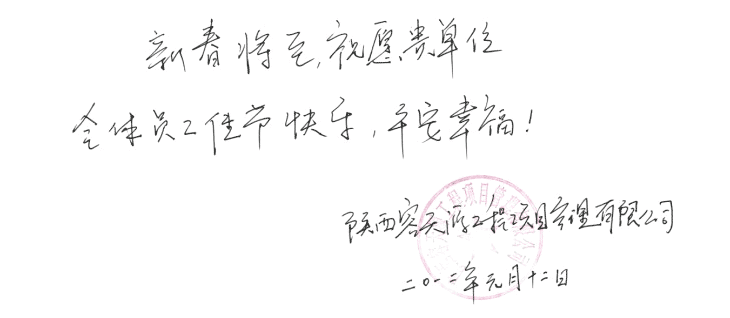 新春将至,祝愿贵单位
全体员工佳节快乐,平安幸福!
工程项目管理
陕西容天源工程项目管理有限公司
二〇一二年元月十二日